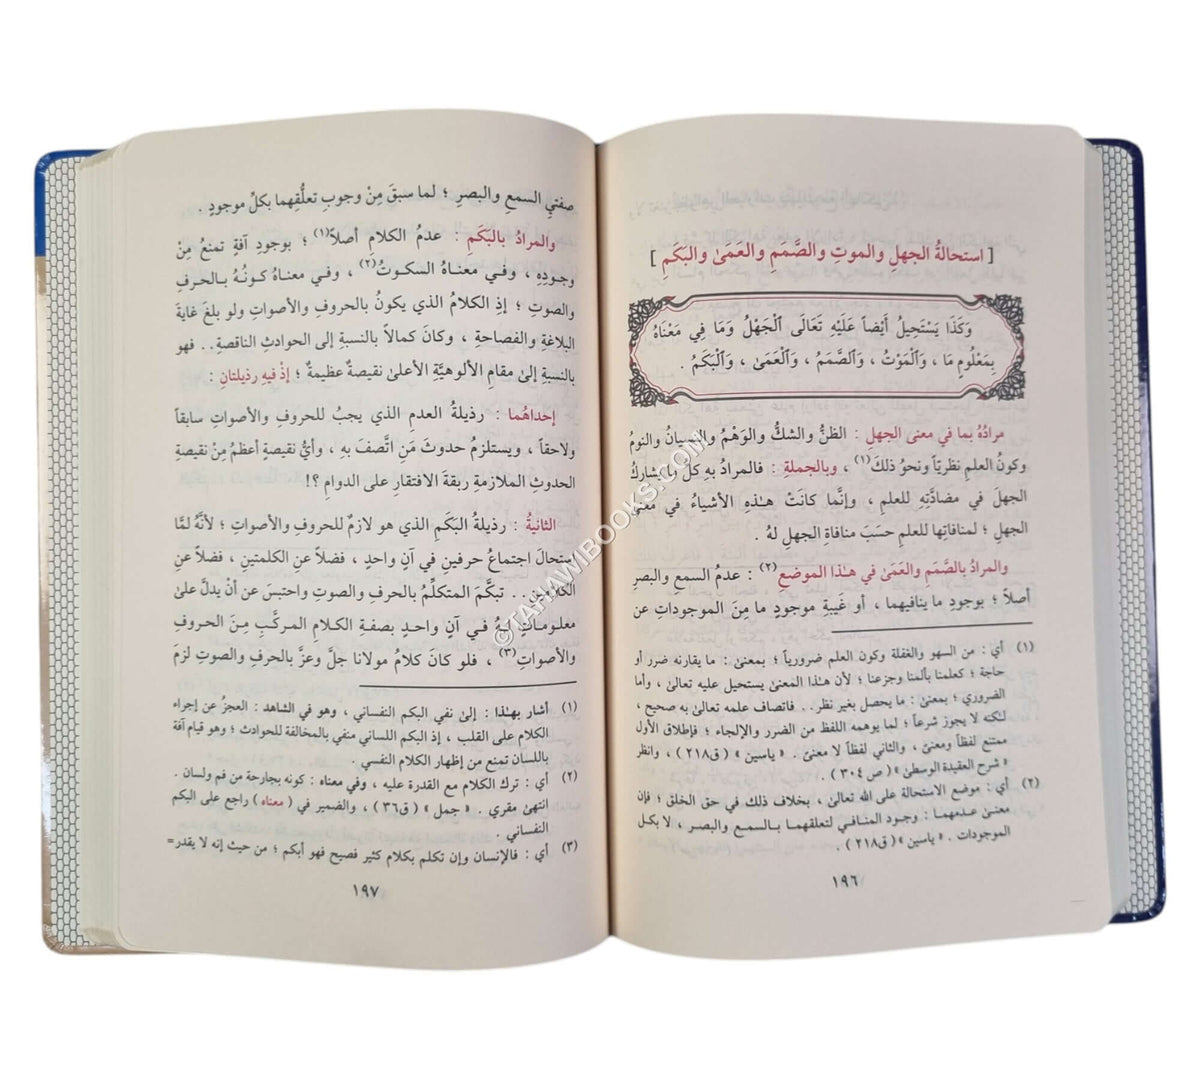 [ استحالةُ الجهلِ والموتِ والصَّممِ والعَمَىٰ والبَكَمِ ]
وَكَذَا يَسْتَحِيلُ أَيْضاً عَلَيْهِ تَعَالَى ٱلْجَهْلُ وَمَا فِي مَعْنَاهُ
بِمَعْلُومٍ مَا ، وَٱلْمَوْتُ ، وَٱلصَّمَمُ ، وَٱلْعَمَىٰ ، وَٱلْبَكَمُ .
مرادُهُ بما في معنى الجهلِ : الظنُّ والشكُّ والوَهْمُ والنسيانُ والنومُ
وكونُ العلمِ نظريّاً ونحوُ ذلكَ(١) ، وبالجملةِ : فالمرادُ بهِ كلُّ ما يشاركُ
الجهلَ في مضادَّتِهِ للعلمِ ، وإنَّما كانَتْ هـٰذهِ الأشياءُ في معنى
الجهلِ ؛ لمنافاتِها للعلمِ حسَبَ منافاةِ الجهلِ لهُ .
والمرادُ بالصَّممِ والعَمَىٰ في هـٰذا الموضعِ(٢) : عدمُ السمعِ والبصرِ
أصلاً ؛ بوجودِ ما ينافيهما ، أو غَيبةِ موجودٍ ما مِنَ الموجوداتِ عن
(١) أي : من السهو والغفلة وكون العلم ضرورياً ؛ بمعنىٰ : ما يقارنه ضرر أو
حاجة ؛ كعلمنا بألمنا وجزعنا ؛ لأن هـٰذا المعنىٰ يستحيل عليه تعالىٰ ، وأما
الضروري ؛ بمعنىٰ : ما يحصل بغير نظر.. فاتصاف علمه تعالىٰ به صحيح ،
لكنه لا يجوز شرعاً ؛ لما يوهمه اللفظ من الضرر والإلجاء ؛ فإطلاق الأول
ممتنع لفظاً ومعنىٰ ، والثاني لفظاً لا معنىٰ . « ياسين » ( ق٢١٨ ) ، وانظر
« شرح العقيدة الوسطىٰ » ( ص ٣٠٤ ) .
(٢) أي : موضع الاستحالة على الله تعالىٰ ، بخلاف ذلك في حق الخلق ؛ فإن
معنىٰ عدمهما : وجود المنافي لتعلقهما بـالسمع والبصر ، لا بكـل
الموجودات . « ياسين » ( ق٢١٨ ) .
١٩٦
صفتيِ السمعِ والبصرِ ؛ لما سبقَ مِنْ وجوبِ تعلُّقِهما بكلِّ موجودٍ .
والمرادُ بالبَكَمِ : عدمُ الكلامِ أصلاً(١) ؛ بوجودِ آفةٍ تمنعُ مِنْ
وجودِهِ ، وفي معناهُ السكوتُ(٢) ، وفي معناهُ كونُهُ بـالحرفِ
والصوتِ ؛ إذِ الكلامُ الذي يكونُ بالحروفِ والأصواتِ ولو بلغَ غايةَ
البلاغةِ والفصاحةِ ، وكانَ كمالاً بالنسبةِ إلى الحوادثِ الناقصةِ.. فهو
بالنسبةِ إلىٰ مقامِ الألوهيَّةِ الأعلىٰ نقيصةٌ عظيمةٌ ؛ إذْ فيهِ رذيلتانِ :
إحداهُما : رذيلةُ العدمِ الذي يجبُ للحروفِ والأصواتِ سابقاً
ولاحقاً ، ويستلزمُ حدوثَ مَنِ اتَّصفَ بهِ ، وأيُّ نقيصةٍ أعظمُ مِنْ نقيصةِ
الحدوثِ الملازمةِ رِبقةَ الافتقارِ على الدوامِ ؟!
الثانيةُ : رذيلةُ البَكَمِ الذي هو لازمٌ للحروفِ والأصواتِ ؛ لأنَّهُ لمَّا
استحالَ اجتماعُ حرفينِ في آنٍ واحدٍ ، فضلاً عنِ الكلمتينِ ، فضلاً عنِ
الكلامينِ.. تبكَّمَ المتكلِّمُ بالحرفِ والصوتِ واحتبسَ عن أنْ يدلَّ علىٰ
معلوماتٍ لهُ في آنٍ واحدٍ بصفةِ الكلامِ المركَّبِ مِنَ الحروفِ
والأصواتِ(٣) ، فلو كانَ كلامُ مولانا جلَّ وعزَّ بالحرفِ والصوتِ لزمَ
(١) أشار بهـٰذا : إلىٰ نفي البكم النفساني ، وهو في الشاهد : العجز عن إجراء
الكلام على القلب ، إذ البكم اللساني منفي بالمخالفة للحوادث ؛ وهو قيام آفة
باللسان تمنع من إظهار الكلام النفسي .
(٢) أي : ترك الكلام مع القدرة عليه ، وفي معناه : كونه بجارحة من فم ولسان .
انتهىٰ مقري . « جمل » ( ق٣٦ ) ، والضمير في ( معناه ) راجع على البكم
النفساني .
(٣) أي : فالإنسان وإن تكلم بكلام كثير فصيح فهو أبكم ؛ من حيث إنه لا يقدر=
١٩٧
©TAHAWIBOOKS.COM